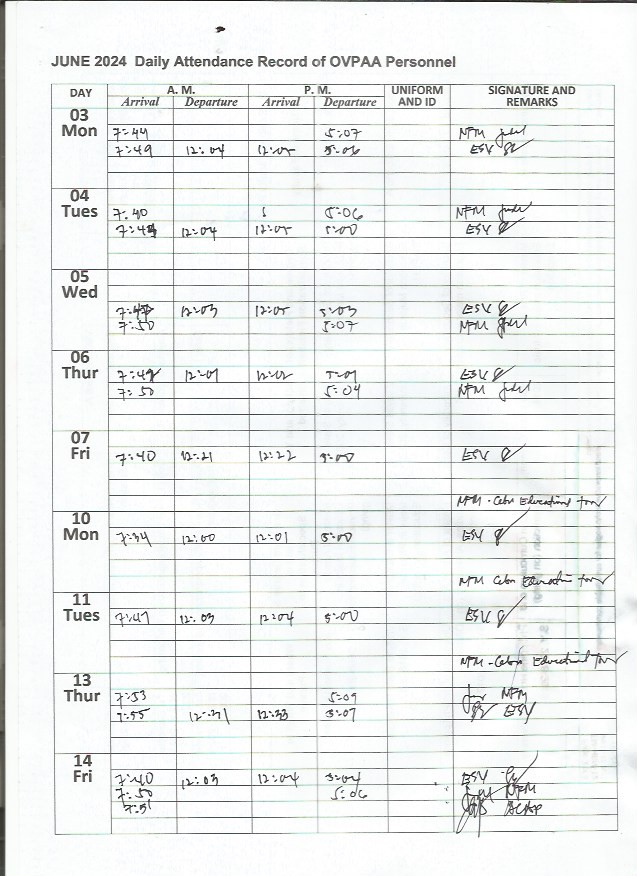 JUNE 2024 Daily Attendance Record of OVPAA Personnel
DAY A. M. P. M. UNIFORM AND ID SIGNATURE AND REMARKS
Arrival Departure Arrival Departure
03 Mon
7:44 5:07 NFM
7:49 12:04 12:05 5:06 ESV
04 Tues
7:40 5:06 NFM
12:04 12:05 5:00 ESV
05 Wed
12:03 12:05 5:03 ESV
7:50 5:07 NFM
06 Thur
7:49 12:01 12:02 5:01 ESV
7:50 5:04 NFM
07 Fri
7:40 12:21 12:22 5:00 ESV
NFM - Cebu Educational Tour
10 Mon
7:34 12:00 12:01 5:00 ESV
NFM Cebu Education Tour
11 Tues
7:47 12:03 12:04 5:00 ESV
NFM - Cebu Educational Tour
13 Thur
7:53 5:09 NFM
7:55 12:31 12:33 5:07 ESV
14 Fri
7:40 12:03 12:04 5:04 ESV
7:50 5:06 NFM
7:51